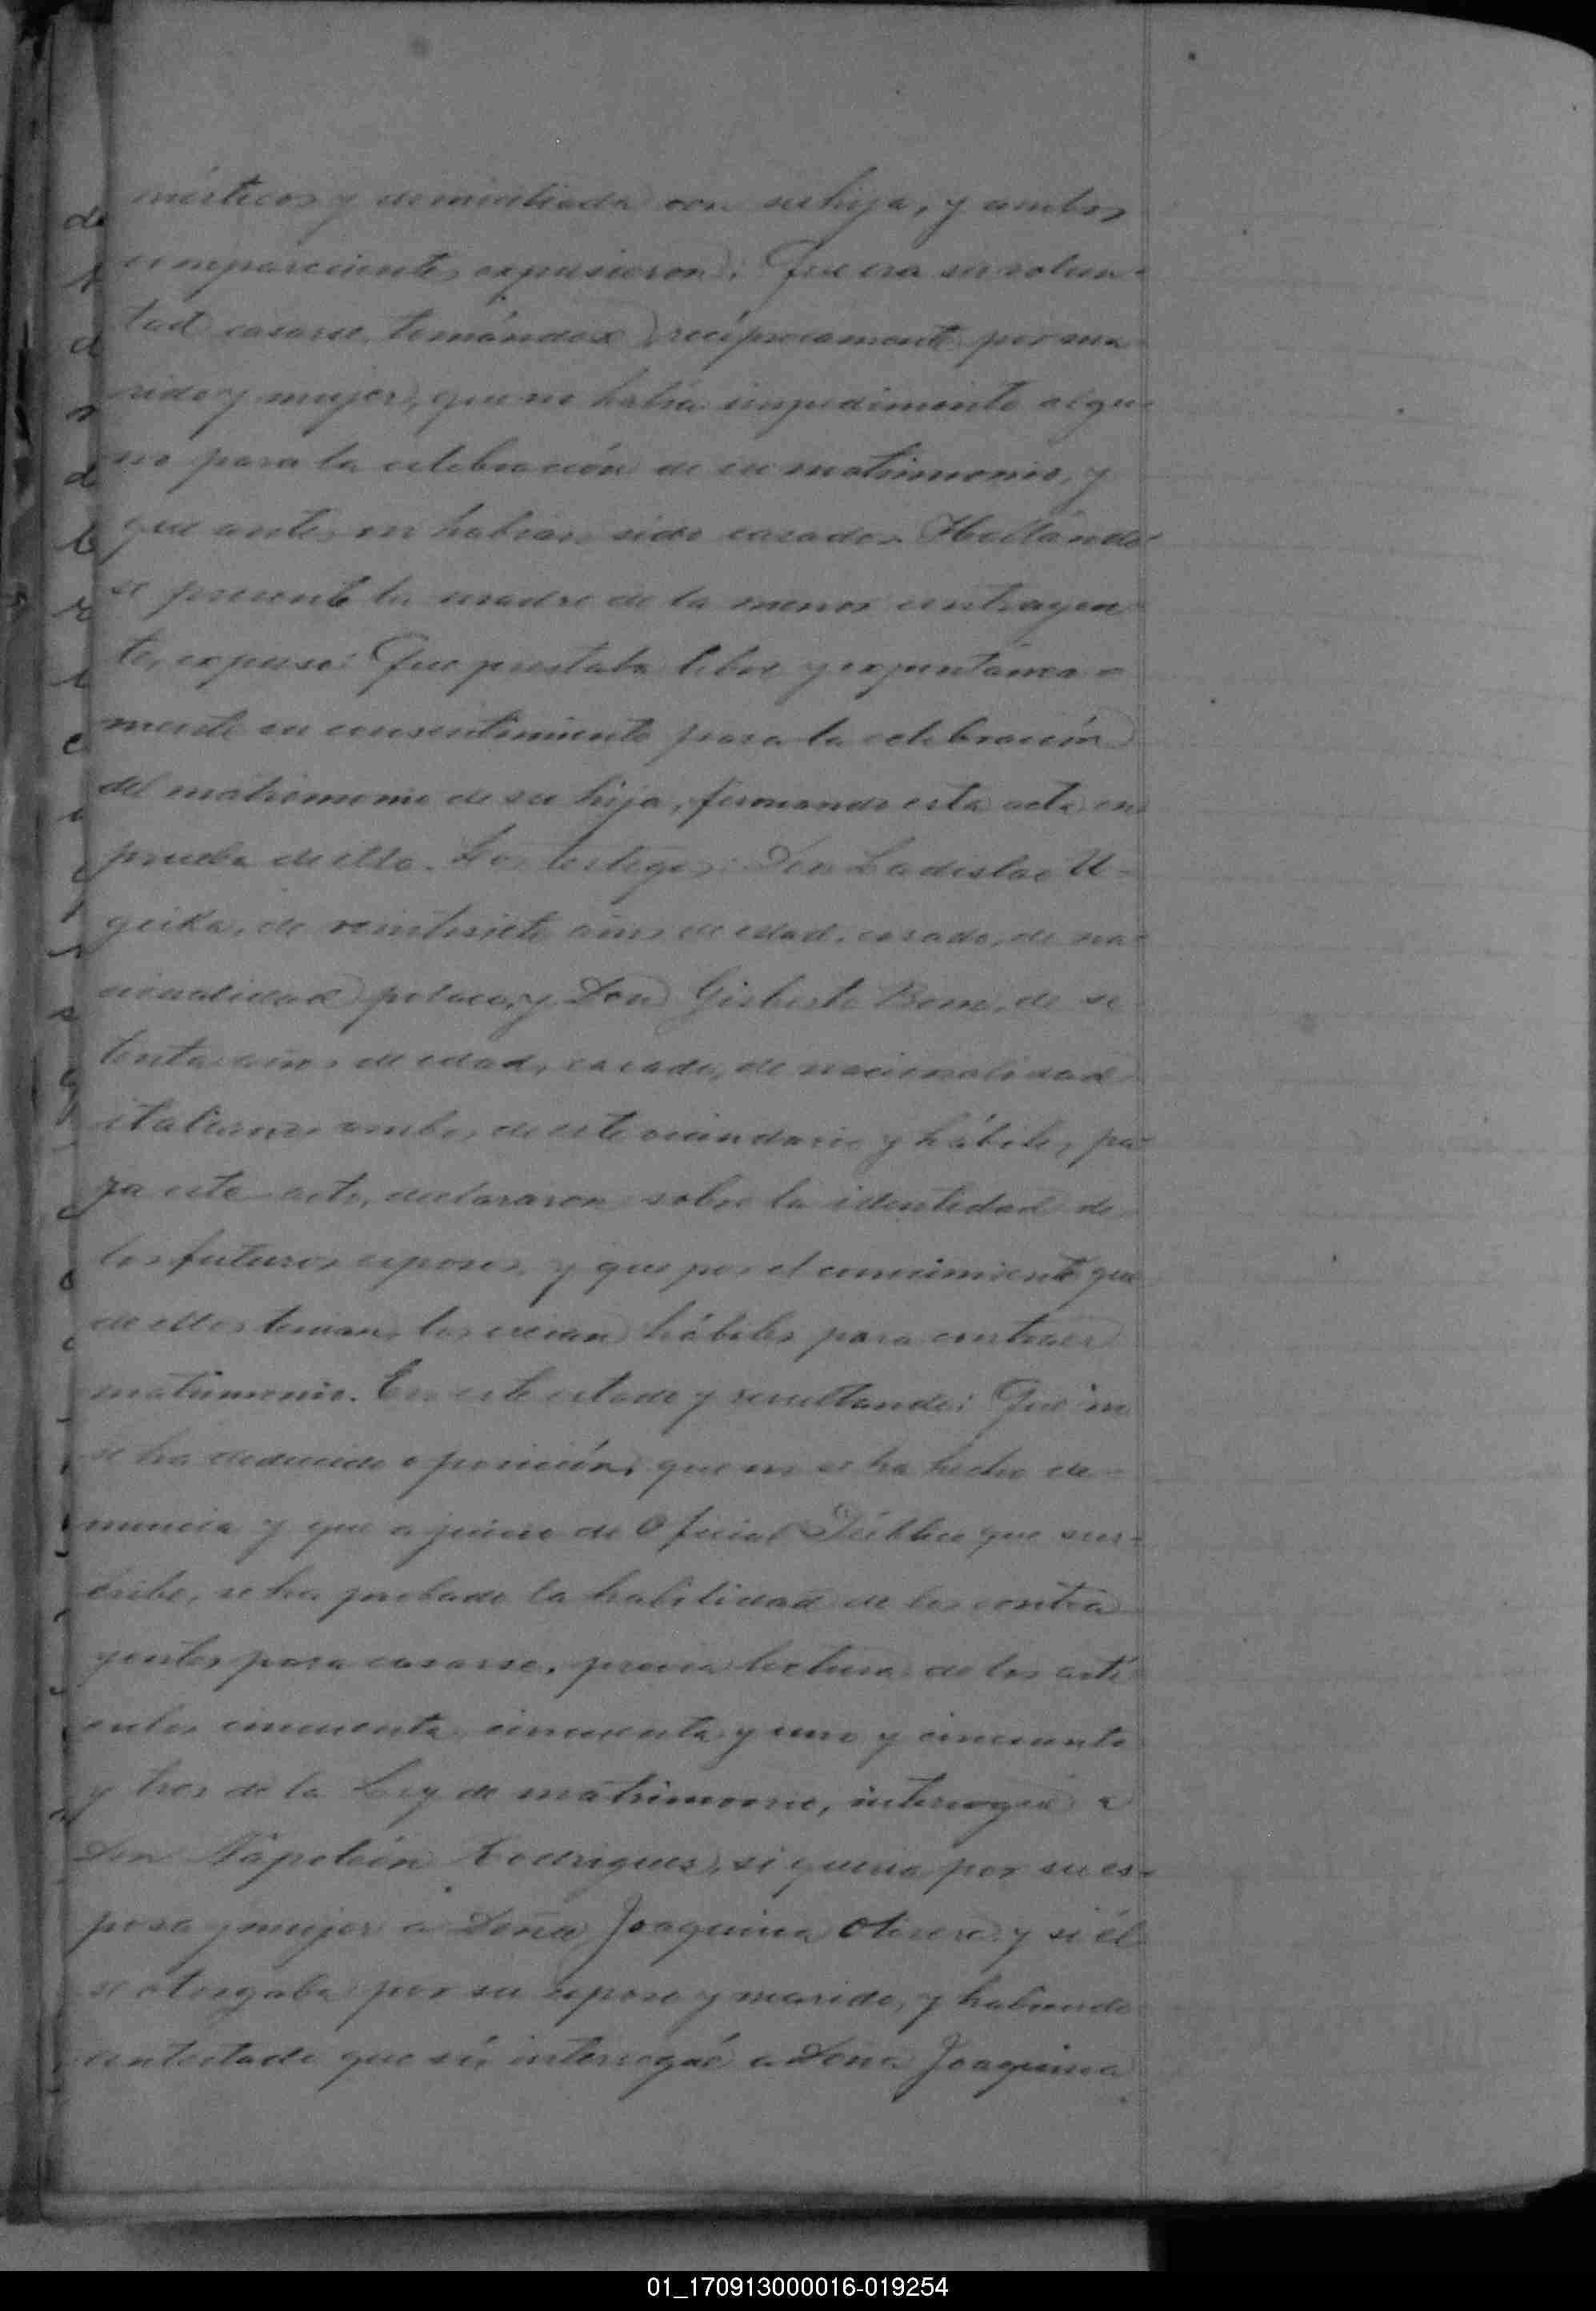 mésticos y domiciliada con su hija, y ambos
comparecientes expusieron: Que era su volun-
tad casarse, tomándose recíprocamente por ma-
rido y mujer, que no había impedimento algu-
no para la celebración de su matrimonio, y
que antes no habían sido casados. Hallándo-
se presente la madre de la menor contrayen-
te, expuso: Que prestaba libre y expontánea-
mente su consentimiento para la celebración
del matrimonio de su hija, firmando esta acta en
prueba de ello. Los testigos: Don Ladislao U-
, de veintisiete años de edad, casado, de na-
cionalidad polaco, y Don Gisberto , de se-
tenta años de edad, casado, de nacionalidad
italiano, ambos de este vecindario y hábiles pa-
ra este acto, declararon sobre la identidad de
los futuros esposos, y que por el conocimiento que
de ellos tenían, los creían hábiles para contraer
matrimonio. En este estado y resultando: Que no
se ha deducido oposición, que no se ha hecho de-
nuncia y que a juicio de Oficial Público que sus-
cribe, se ha probado la habilidad de los contra-
yentes para casarse, previa lectura de los artí-
culos cincuenta, cincuenta y uno y cincuenta
y tres de la Ley de matrimonio, interrogué a
Don Napoleón Rodriguez, si quería por su es-
posa y mujer a Doña Joaquina Olivera y si él
se otorgaba por su esposo y marido, y habiendo
contestado que sí, interrogué a Doña Joaquina
01_170913000016-019254